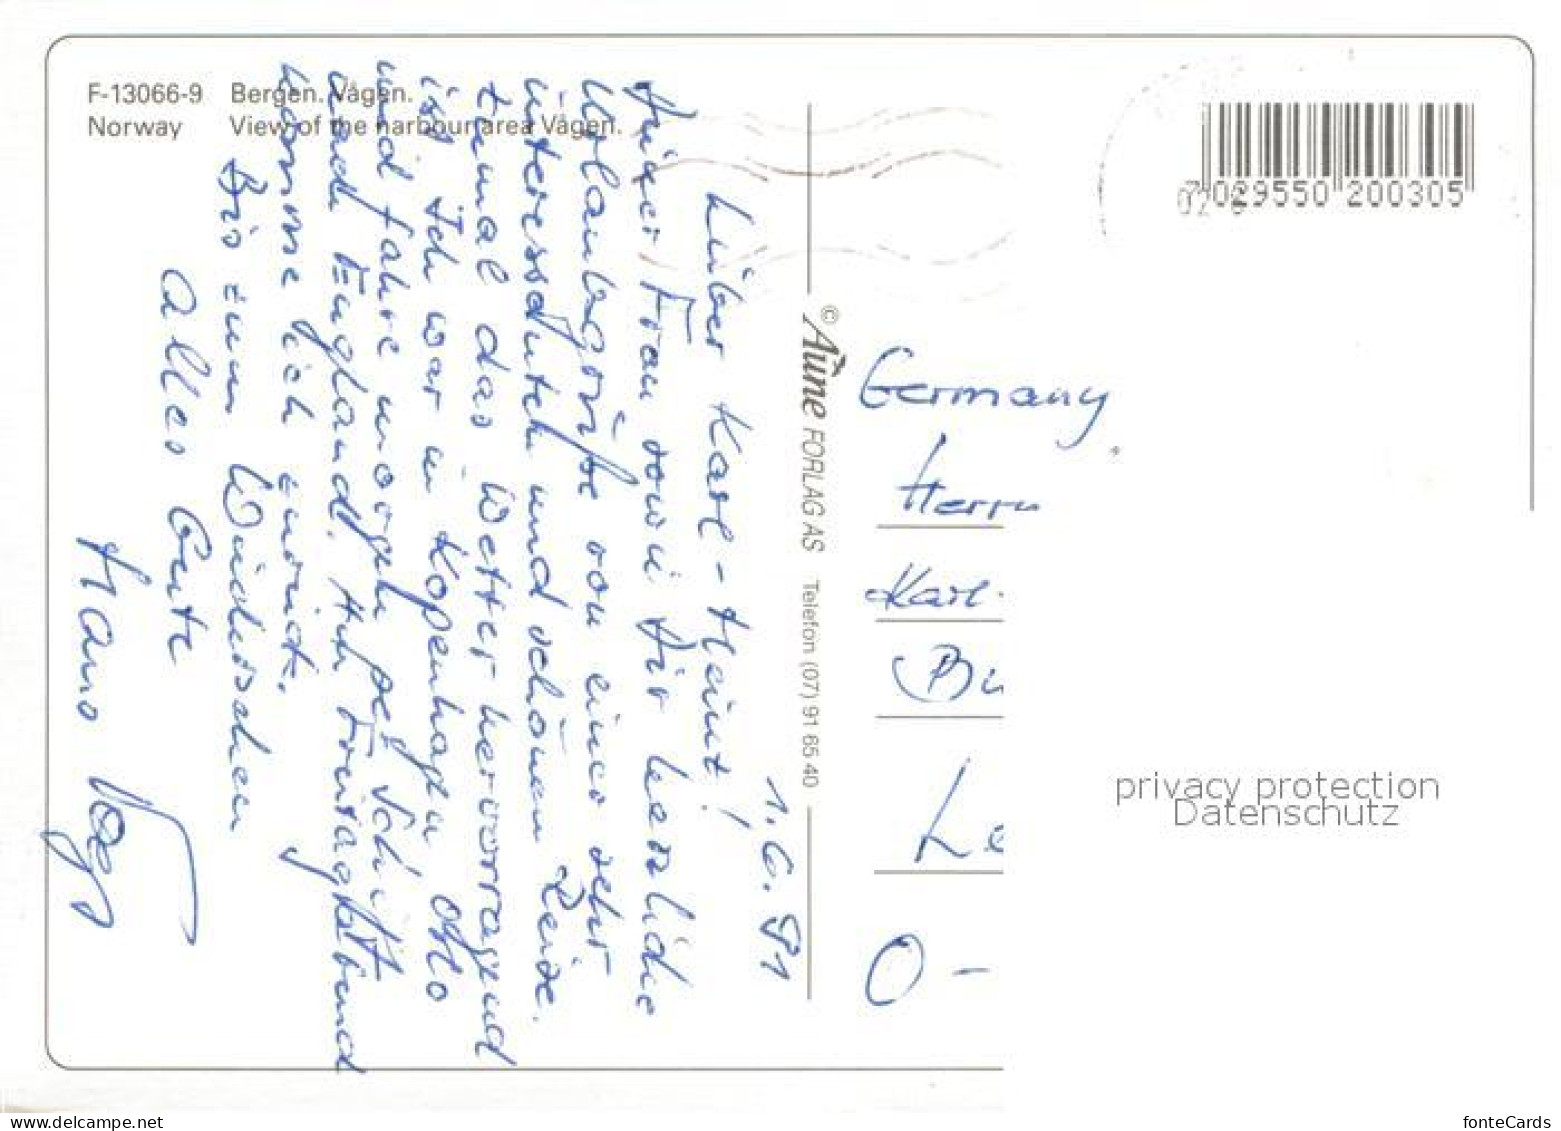 F-13066-9 Bergen. Vågen.
Norway View of the harbour area Vågen.
1. 6. 91
Lieber Karl-Heinz!
Deiner Frau sowie Dir herzliche
Urlaubsgrüße von einer sehr
interessanten und schönen Reise.
zumal das Wetter hervorragend
ist. Ich war in Kopenhagen Oslo
und fahre morgen per Schiff
nach England. Am Freitagabend
komme ich zurück.
Bis zum Wiedersehen
Alles Gute
Hans
© Aune FORLAG AS Telefon (07) 91 65 40
7 029550 200305
Germany
Herrn
Karl-
Bu
Le
O-
privacy protection
Datenschutz
www.delcampe.net
fonteCards